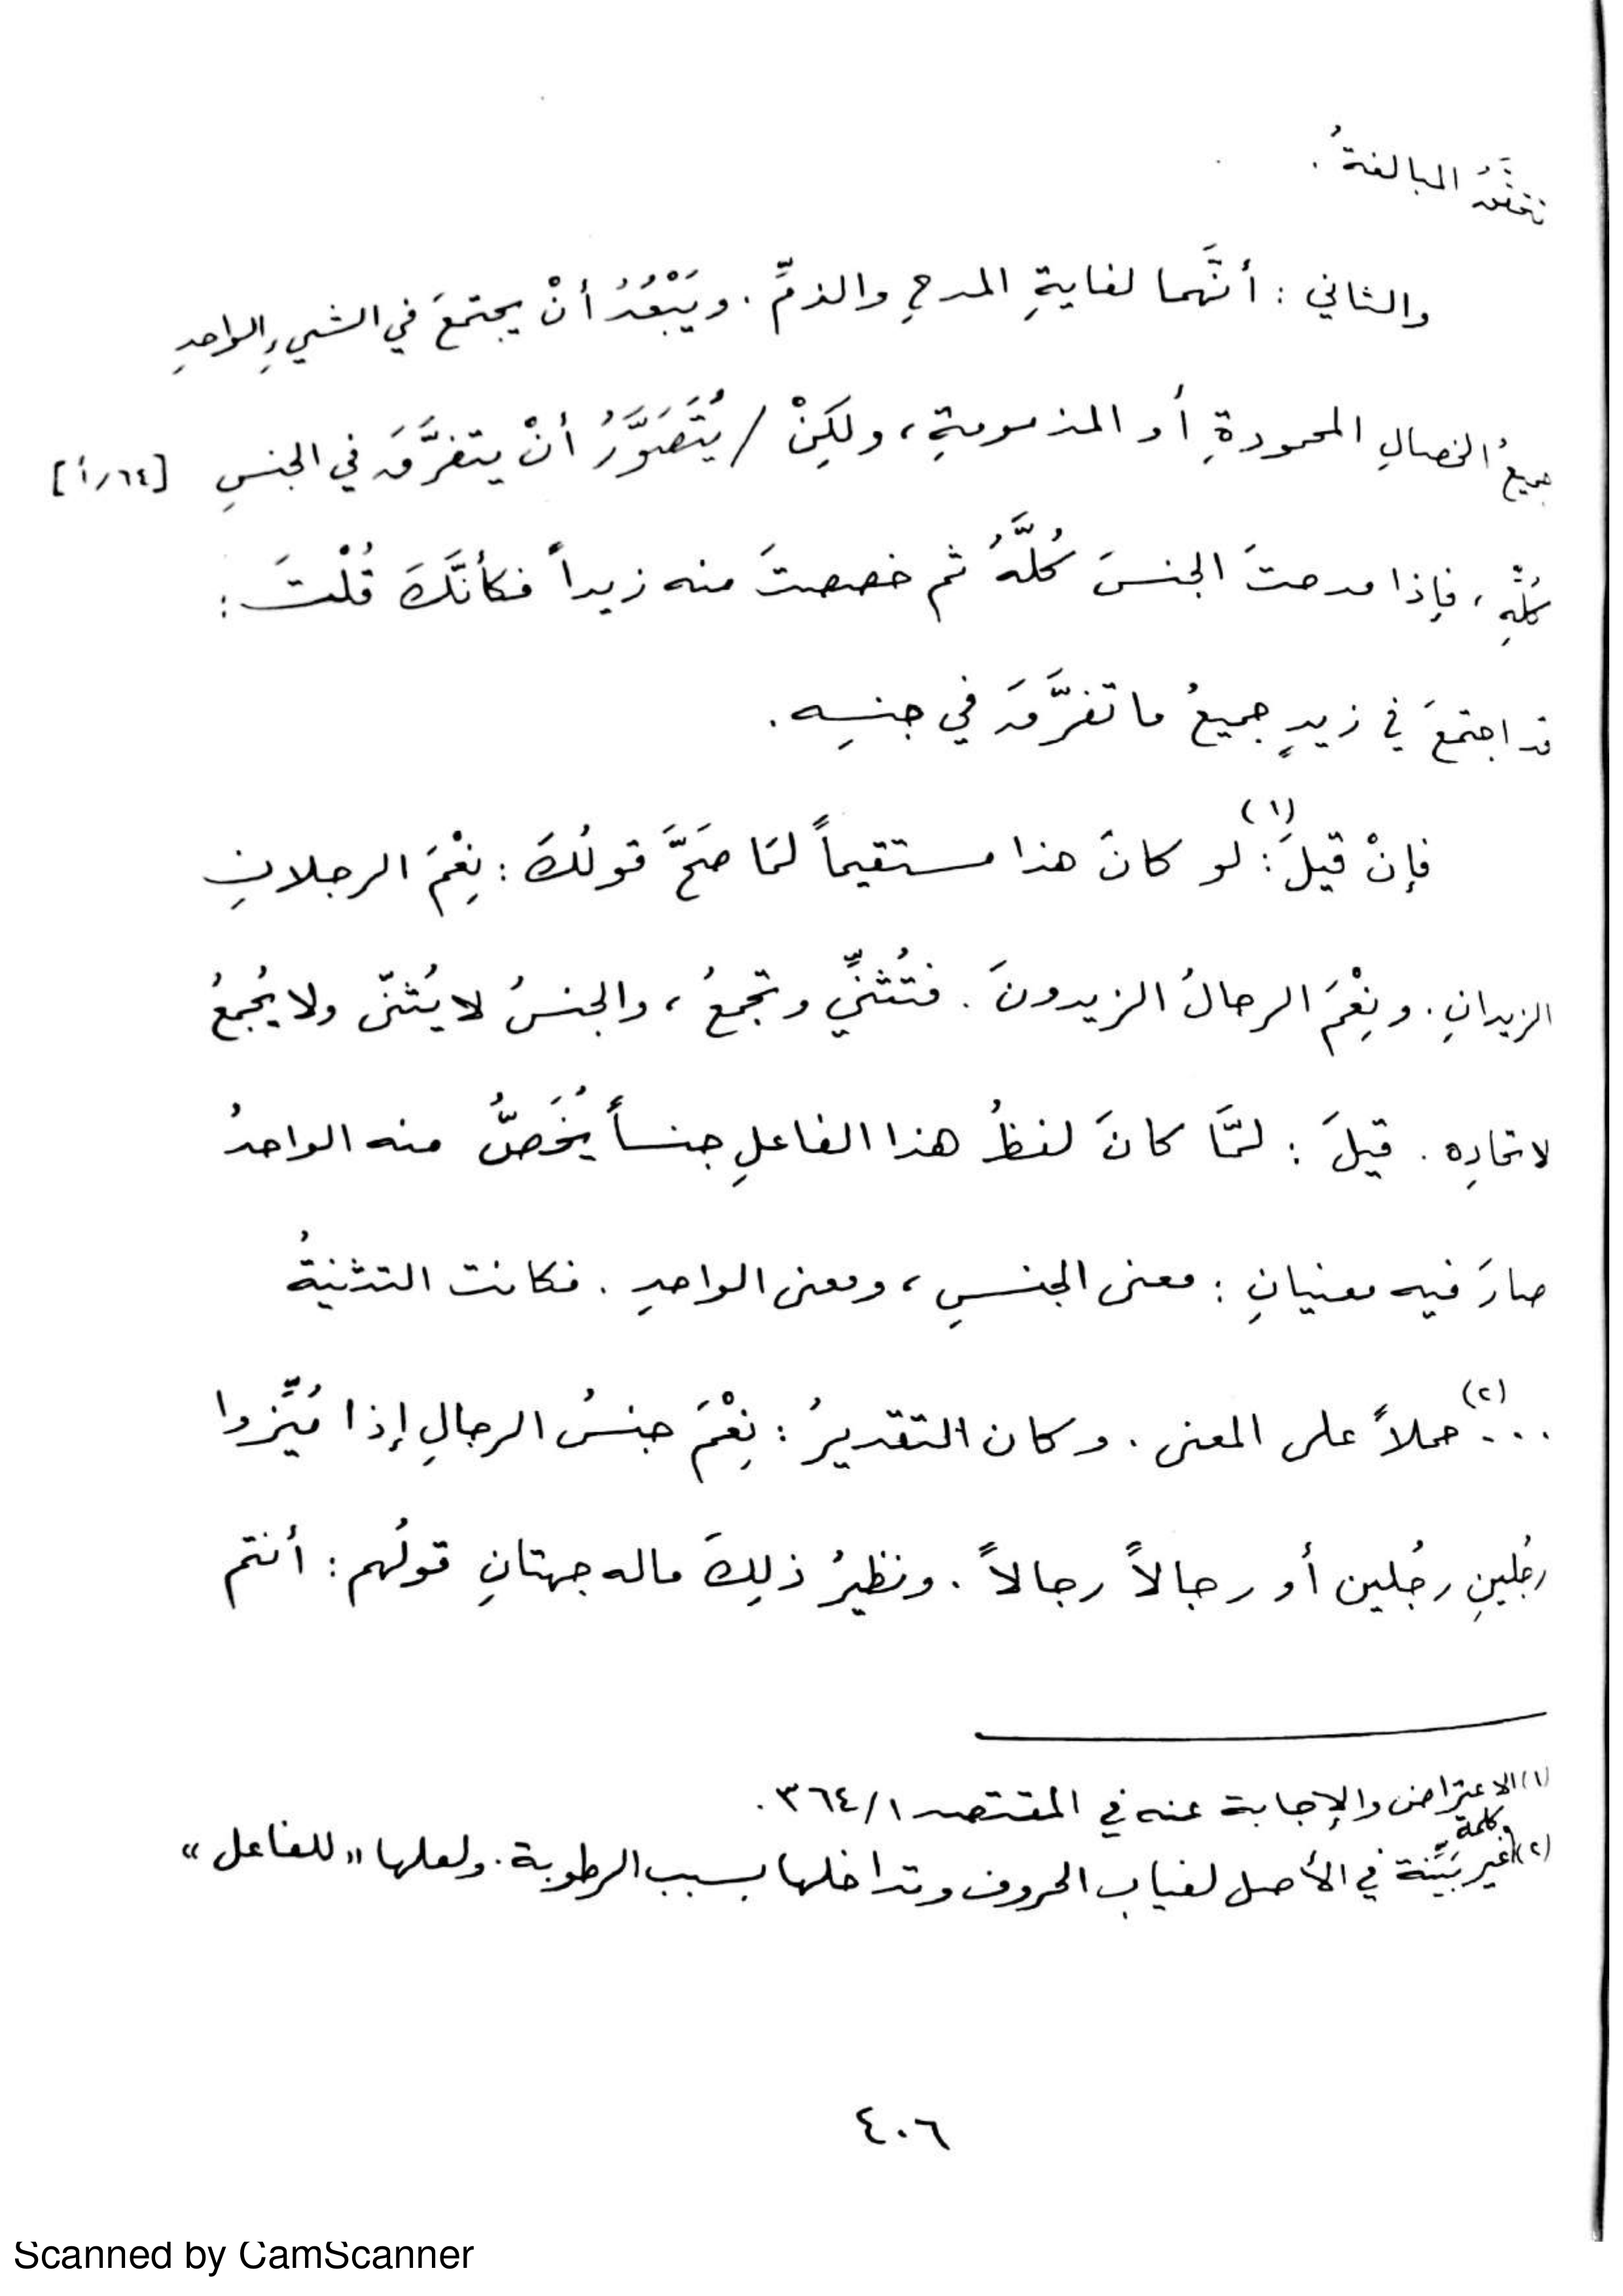 تتحقَّقُ المبالغةُ.
والثاني : أنَّهما لغايةِ المدحِ والذمِّ . ويَبْعُدُ أنْ يجتمعَ في الشيءِ الواحدِ
جميعُ الخصالِ المحمودةِ أو المذمومةِ ، ولكِنْ / يُتَصَوَّرُ أنْ يتفرَّقَ في الجنسِ [٦٤/أ]
كلِّهِ ، فإذا مدحتَ الجنسَ كُلَّهُ ثم خصصتَ منه زيداً فكأنَّكَ قُلْتَ :
قد اجتمعَ في زيدٍ جميعُ ما تفرَّقَ في جنسِه .
فإنْ قيلَ(١): لو كانَ هذا مستقيماً لمَا صَحَّ قولُكَ : نِعْمَ الرجلانِ
الزيدانِ . ونِعْمَ الرجالُ الزيدونَ . فتُثنِّي وتجمعُ ، والجنسُ لا يُثنّى ولا يُجمعُ
لاتحادِه . قيلَ : لمَّا كانَ لفظُ هذا الفاعلِ جنساً يُخَصُّ منه الواحدُ
صارَ فيه معنيانِ : معنى الجنسِ ، ومعنى الواحدِ . فكانت التثنيةُ
. . . .(٢) حملاً على المعنى . وكان التقديرُ : نِعْمَ جنسُ الرجالِ إذا مُيِّزوا
رجُلينِ رجُلين أو رجالاً رجالاً . ونظيرُ ذلِكَ ماله جهتانِ قولُهم : أنتم
(١) الاعتراض والإجابة عنه في المقتصد ١/٣٦٤.
(٢) كلمة غير بيِّنة في الأصل لغياب الحروف وتداخلها بسبب الرطوبة . ولعلها «للفاعل»
٤٠٦
Scanned by CamScanner